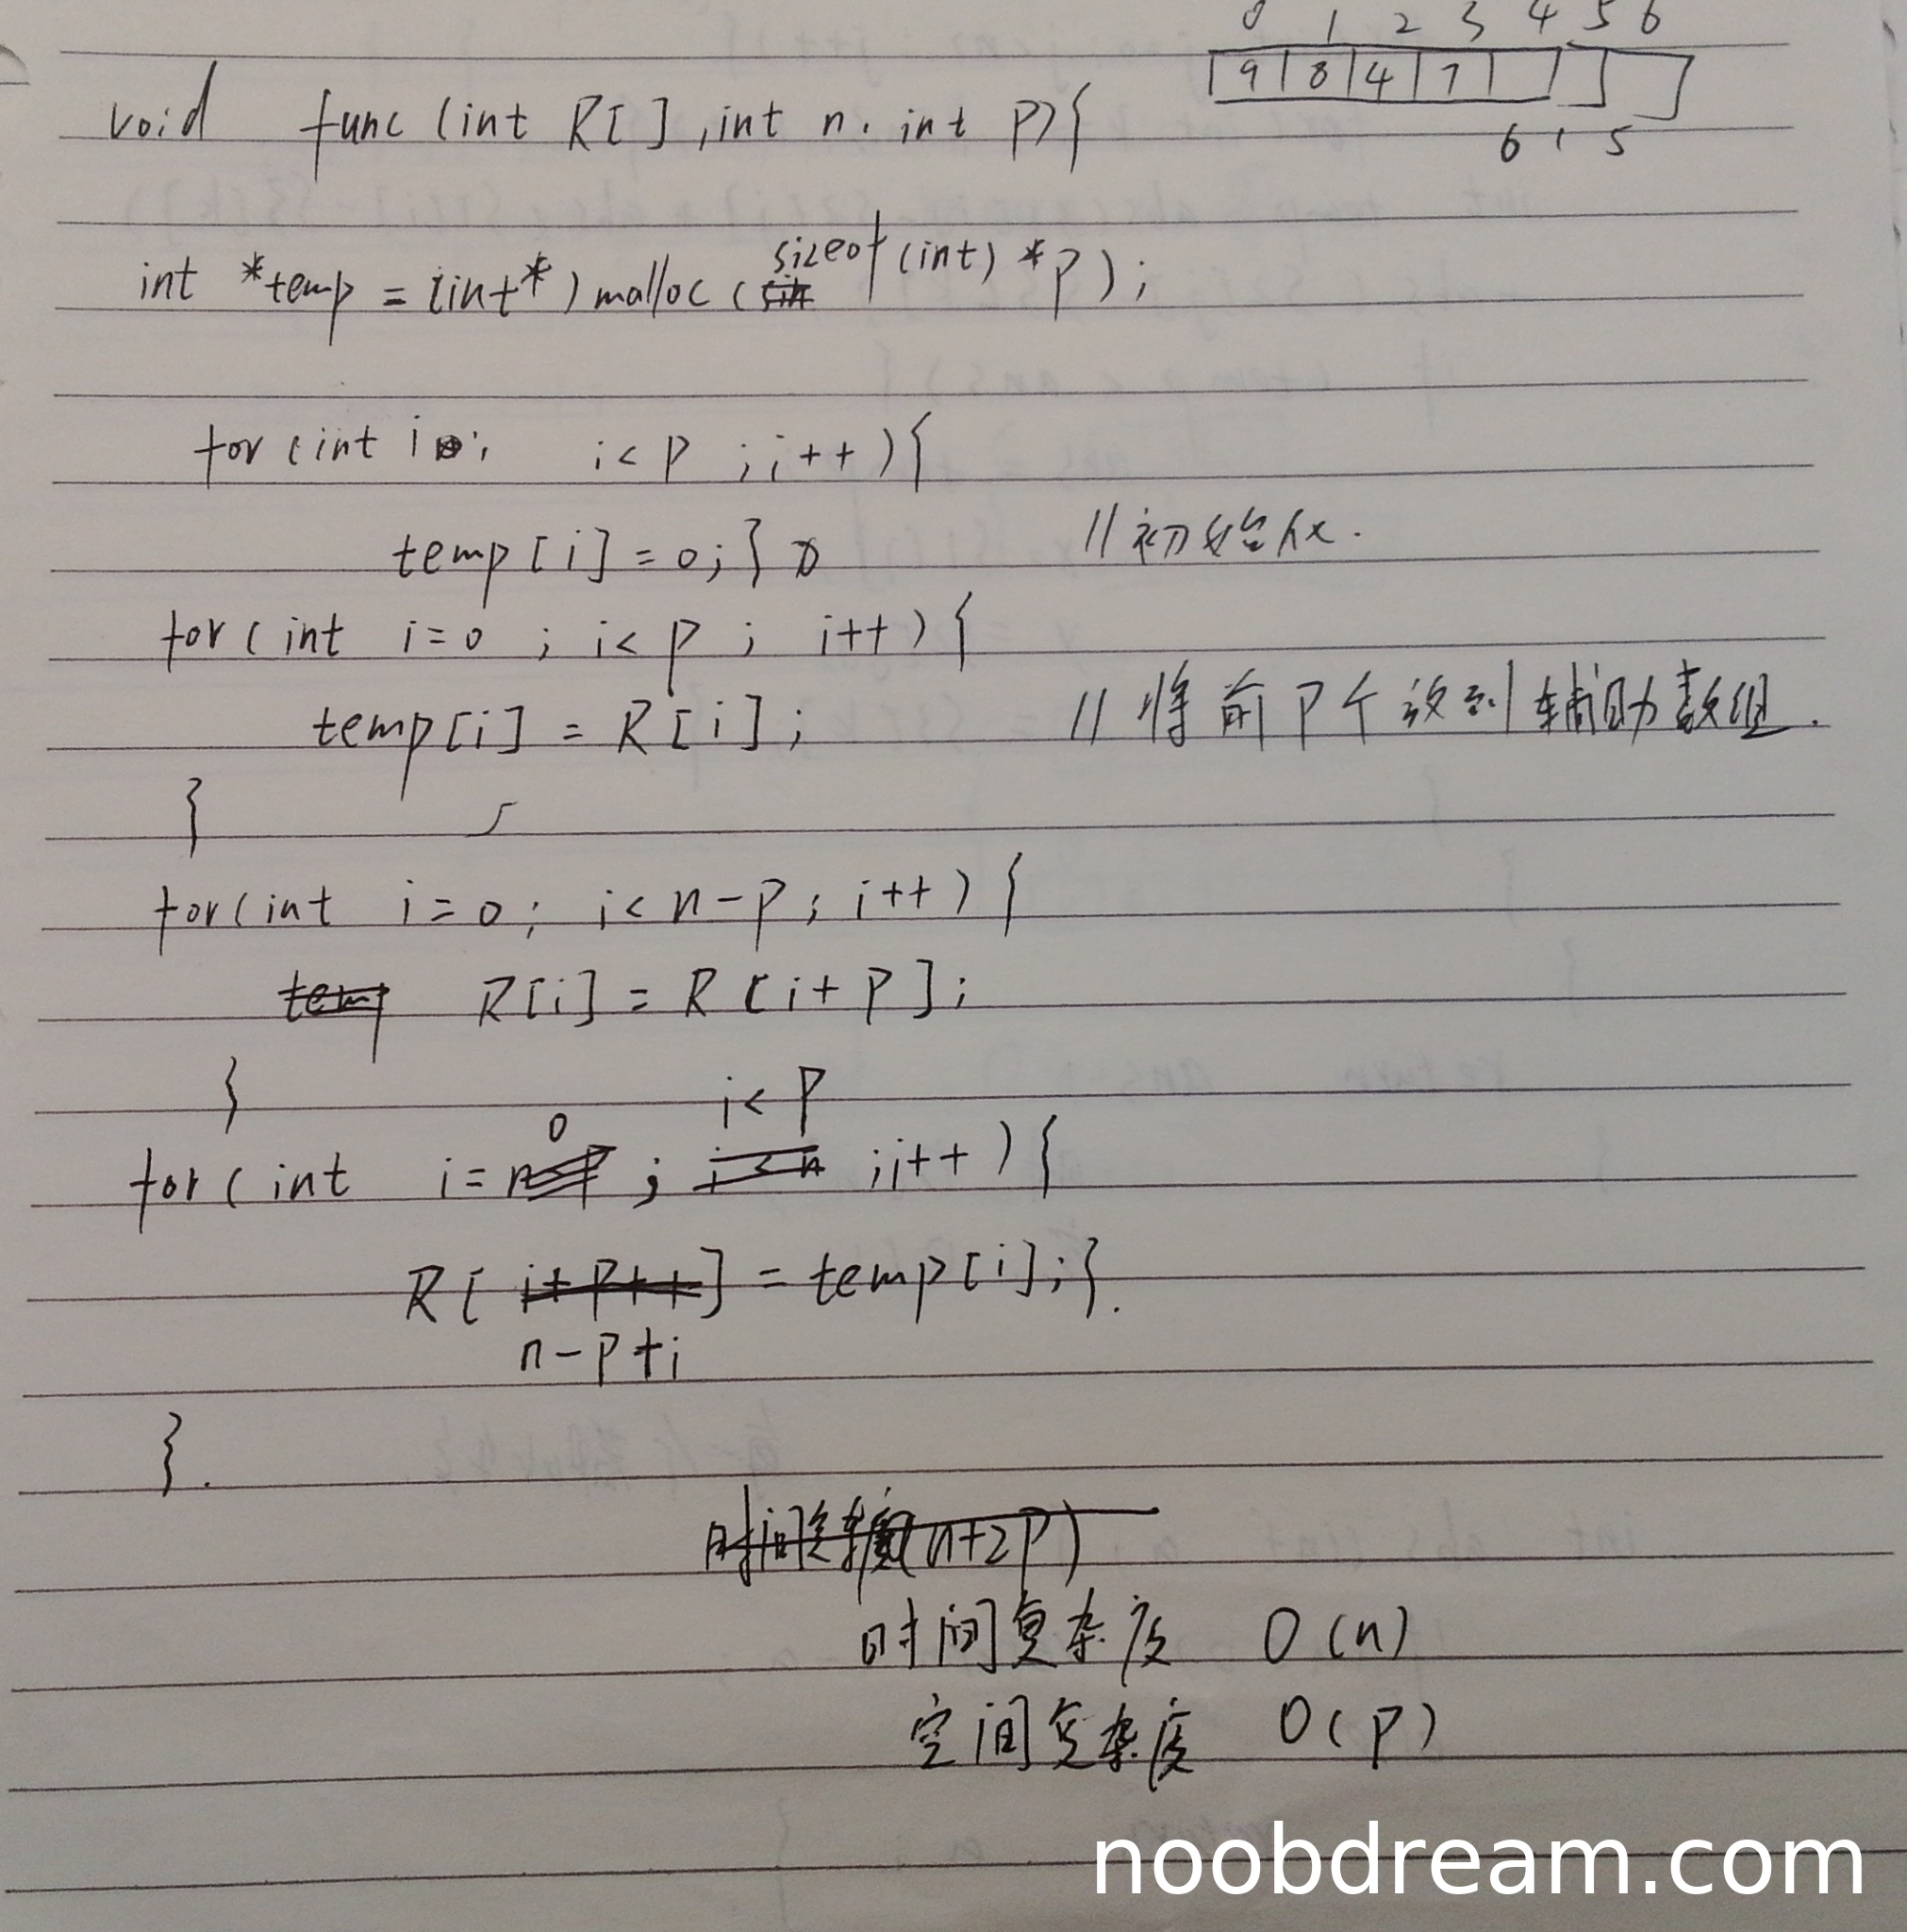 0 1 2 3 4 5 6
9 8 4 7
6 1 5
void func (int R[], int n, int p){
int *temp = (int*) malloc (sizeof(int) *p);
for (int i=0; i<p ; i++){
temp[i] = 0; } //初始化.
for ( int i=0 ; i<p ; i++){
temp[i] = R[i]; // 将前P个放到辅助数组.
}
for (int i=0; i<n-p; i++){
R[i] = R[i+P];
}
for ( int i=0 ; i<P ;i++){
R[n-p+i] = temp[i];}.
}.
时间复杂度(n+2P)
时间复杂度 O(n)
空间复杂度 O(p)
noobdream.com